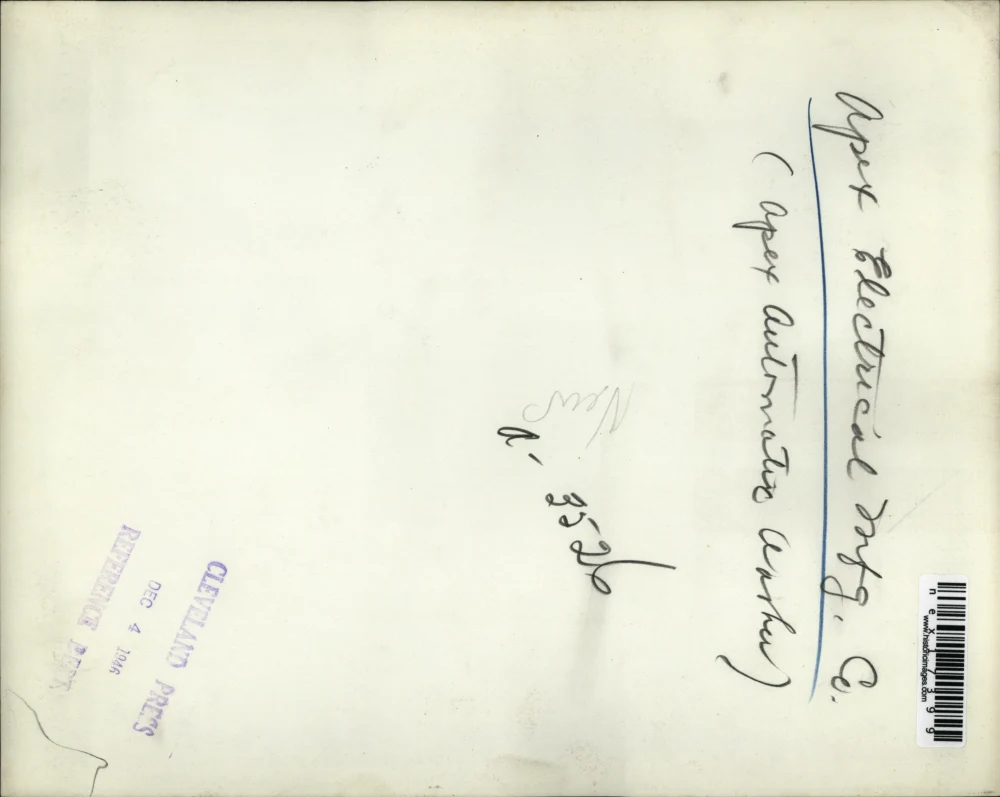 Apex Electrical Mfg. Co.
(Apex Automatic Washer)
News
a' 3526
CLEVELAND PRESS
DEC 4 1946
REFERENCE DEPT.
nex17399
www.historicimages.com